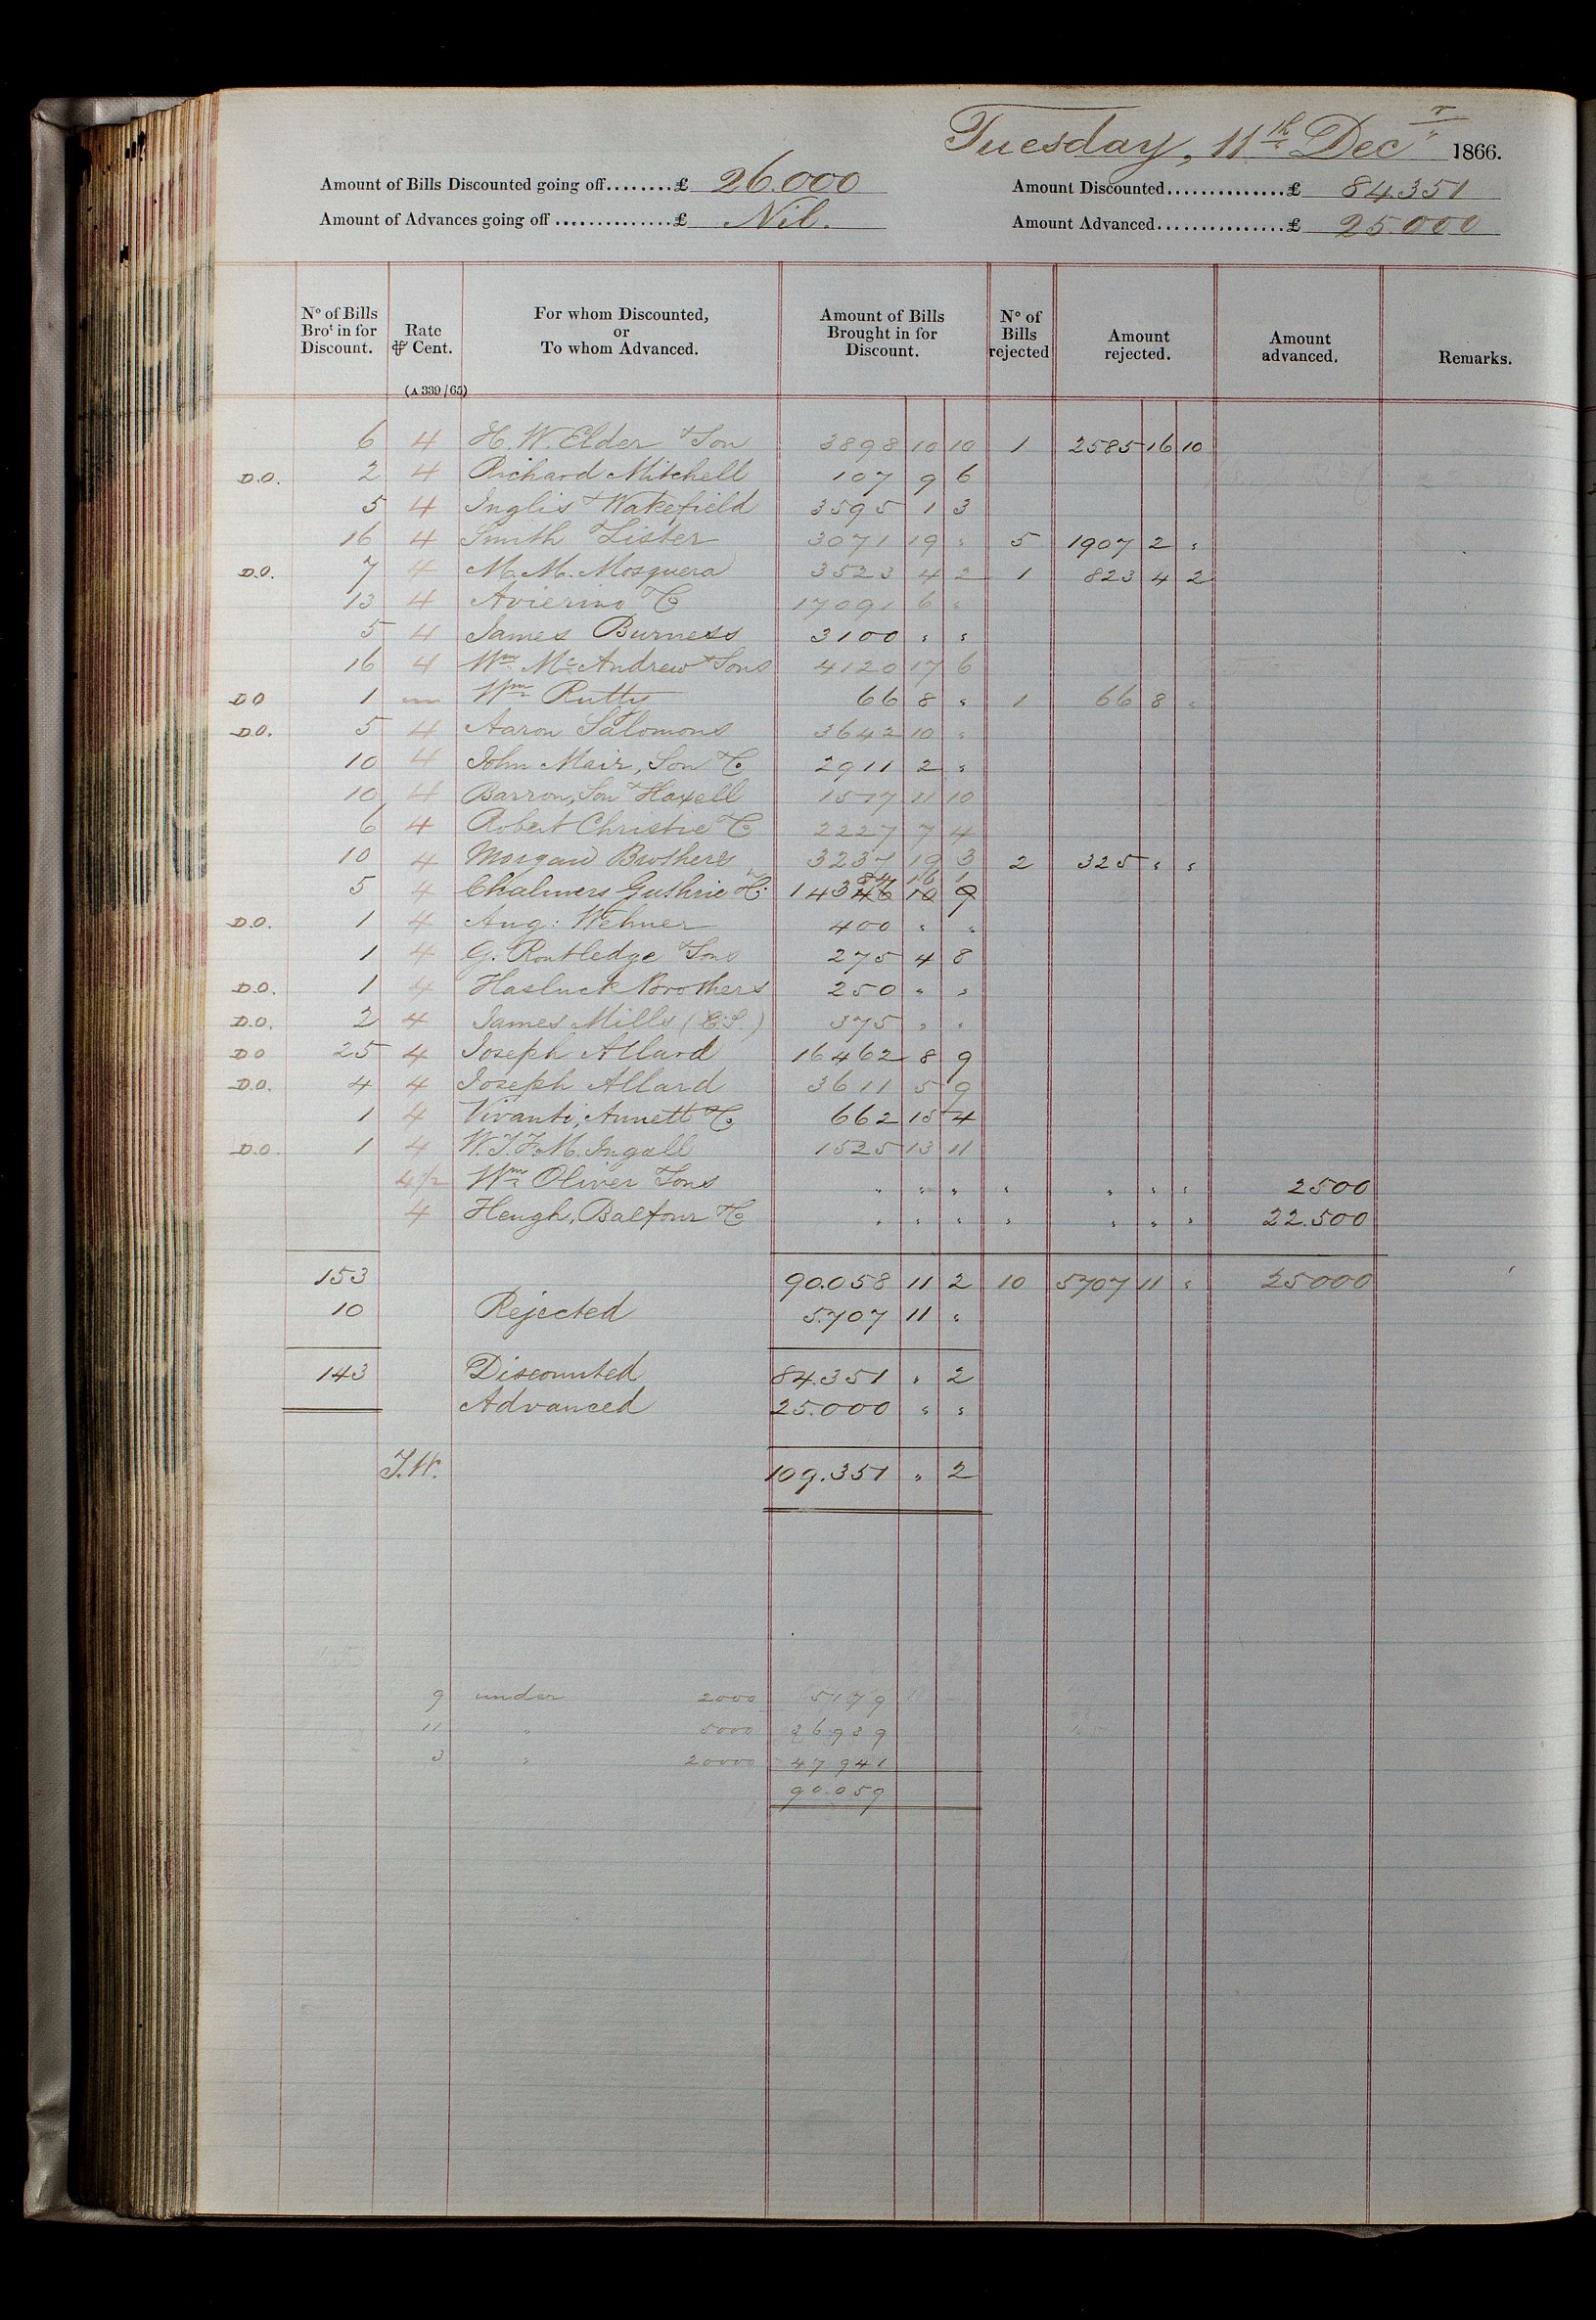 Tuesday, 11th Decr 1866.
Amount of Bills Discounted going off........£ 26.000 Amount Discounted..............£ 84.351
Amount of Advances going off ..............£ Nil. Amount Advanced...............£ 25.000
No of Bills Brot in for Discount. Rate ⅌ Cent. (A 339/65) For whom Discounted, or To whom Advanced. Amount of Bills Brought in for Discount. No of Bills rejected Amount rejected. Amount advanced. Remarks.
6 4 H. W. Elder & Son 3898 10 10 1 2585 16 10
D.O. 2 4 Richard Mitchell 107 9 6
5 4 Inglis & Wakefield 3595 1 3
16 4 Smith & Lister 3071 19 " 5 1907 2 "
D.O. 7 4 M. M. Mosquera 3523 4 2 1 823 4 2
13 4 Avierino & Co 17091 6 "
5 4 James Burness 3100 " "
16 4 Wm McAndrew & Sons 4120 17 6
DO 1 Wm Rutty 66 8 " 1 66 8 "
D.O. 5 4 Aaron Salomons 3642 10 "
10 4 John Mair, Son & Co 2911 2 "
10 4 Barron, Son & Haxell 1517 11 10
6 4 Robert Christie & Co 2227 7 4
10 4 Morgan Brothers 3237 19 3 2 325 " "
87 16 1
5 4 Chalmers Guthrie & Co 14346 10 9
D.O. 1 4 Aug: Wehner 400 " "
1 4 G. Routledge & Sons 275 4 8
D.O. 1 4 Hasluck Brothers 250 " "
D.O. 2 4 James Mills (C.S.) 375 " "
DO 25 4 Joseph Allard 16462 8 9
D.O. 4 4 Joseph Allard 3611 5 9
1 4 Vivanti, Annett & Co 662 15 4
D.O. 1 4 W.T.F.M. Ingall 1525 13 11
4½ Wm Oliver & Sons " " " " " " " 2500
4 Heugh, Balfour & Co " " " " " " " 22.500
153 90.058 11 2 10 5707 11 " 25000
10 Rejected 5.707 11 "
143 Discounted 84.351 " 2
Advanced 25.000 " "
J.W. 109.351 " 2
9 under 2000 5179
11 " 5000 36939
3 " 20000 47941
90.059